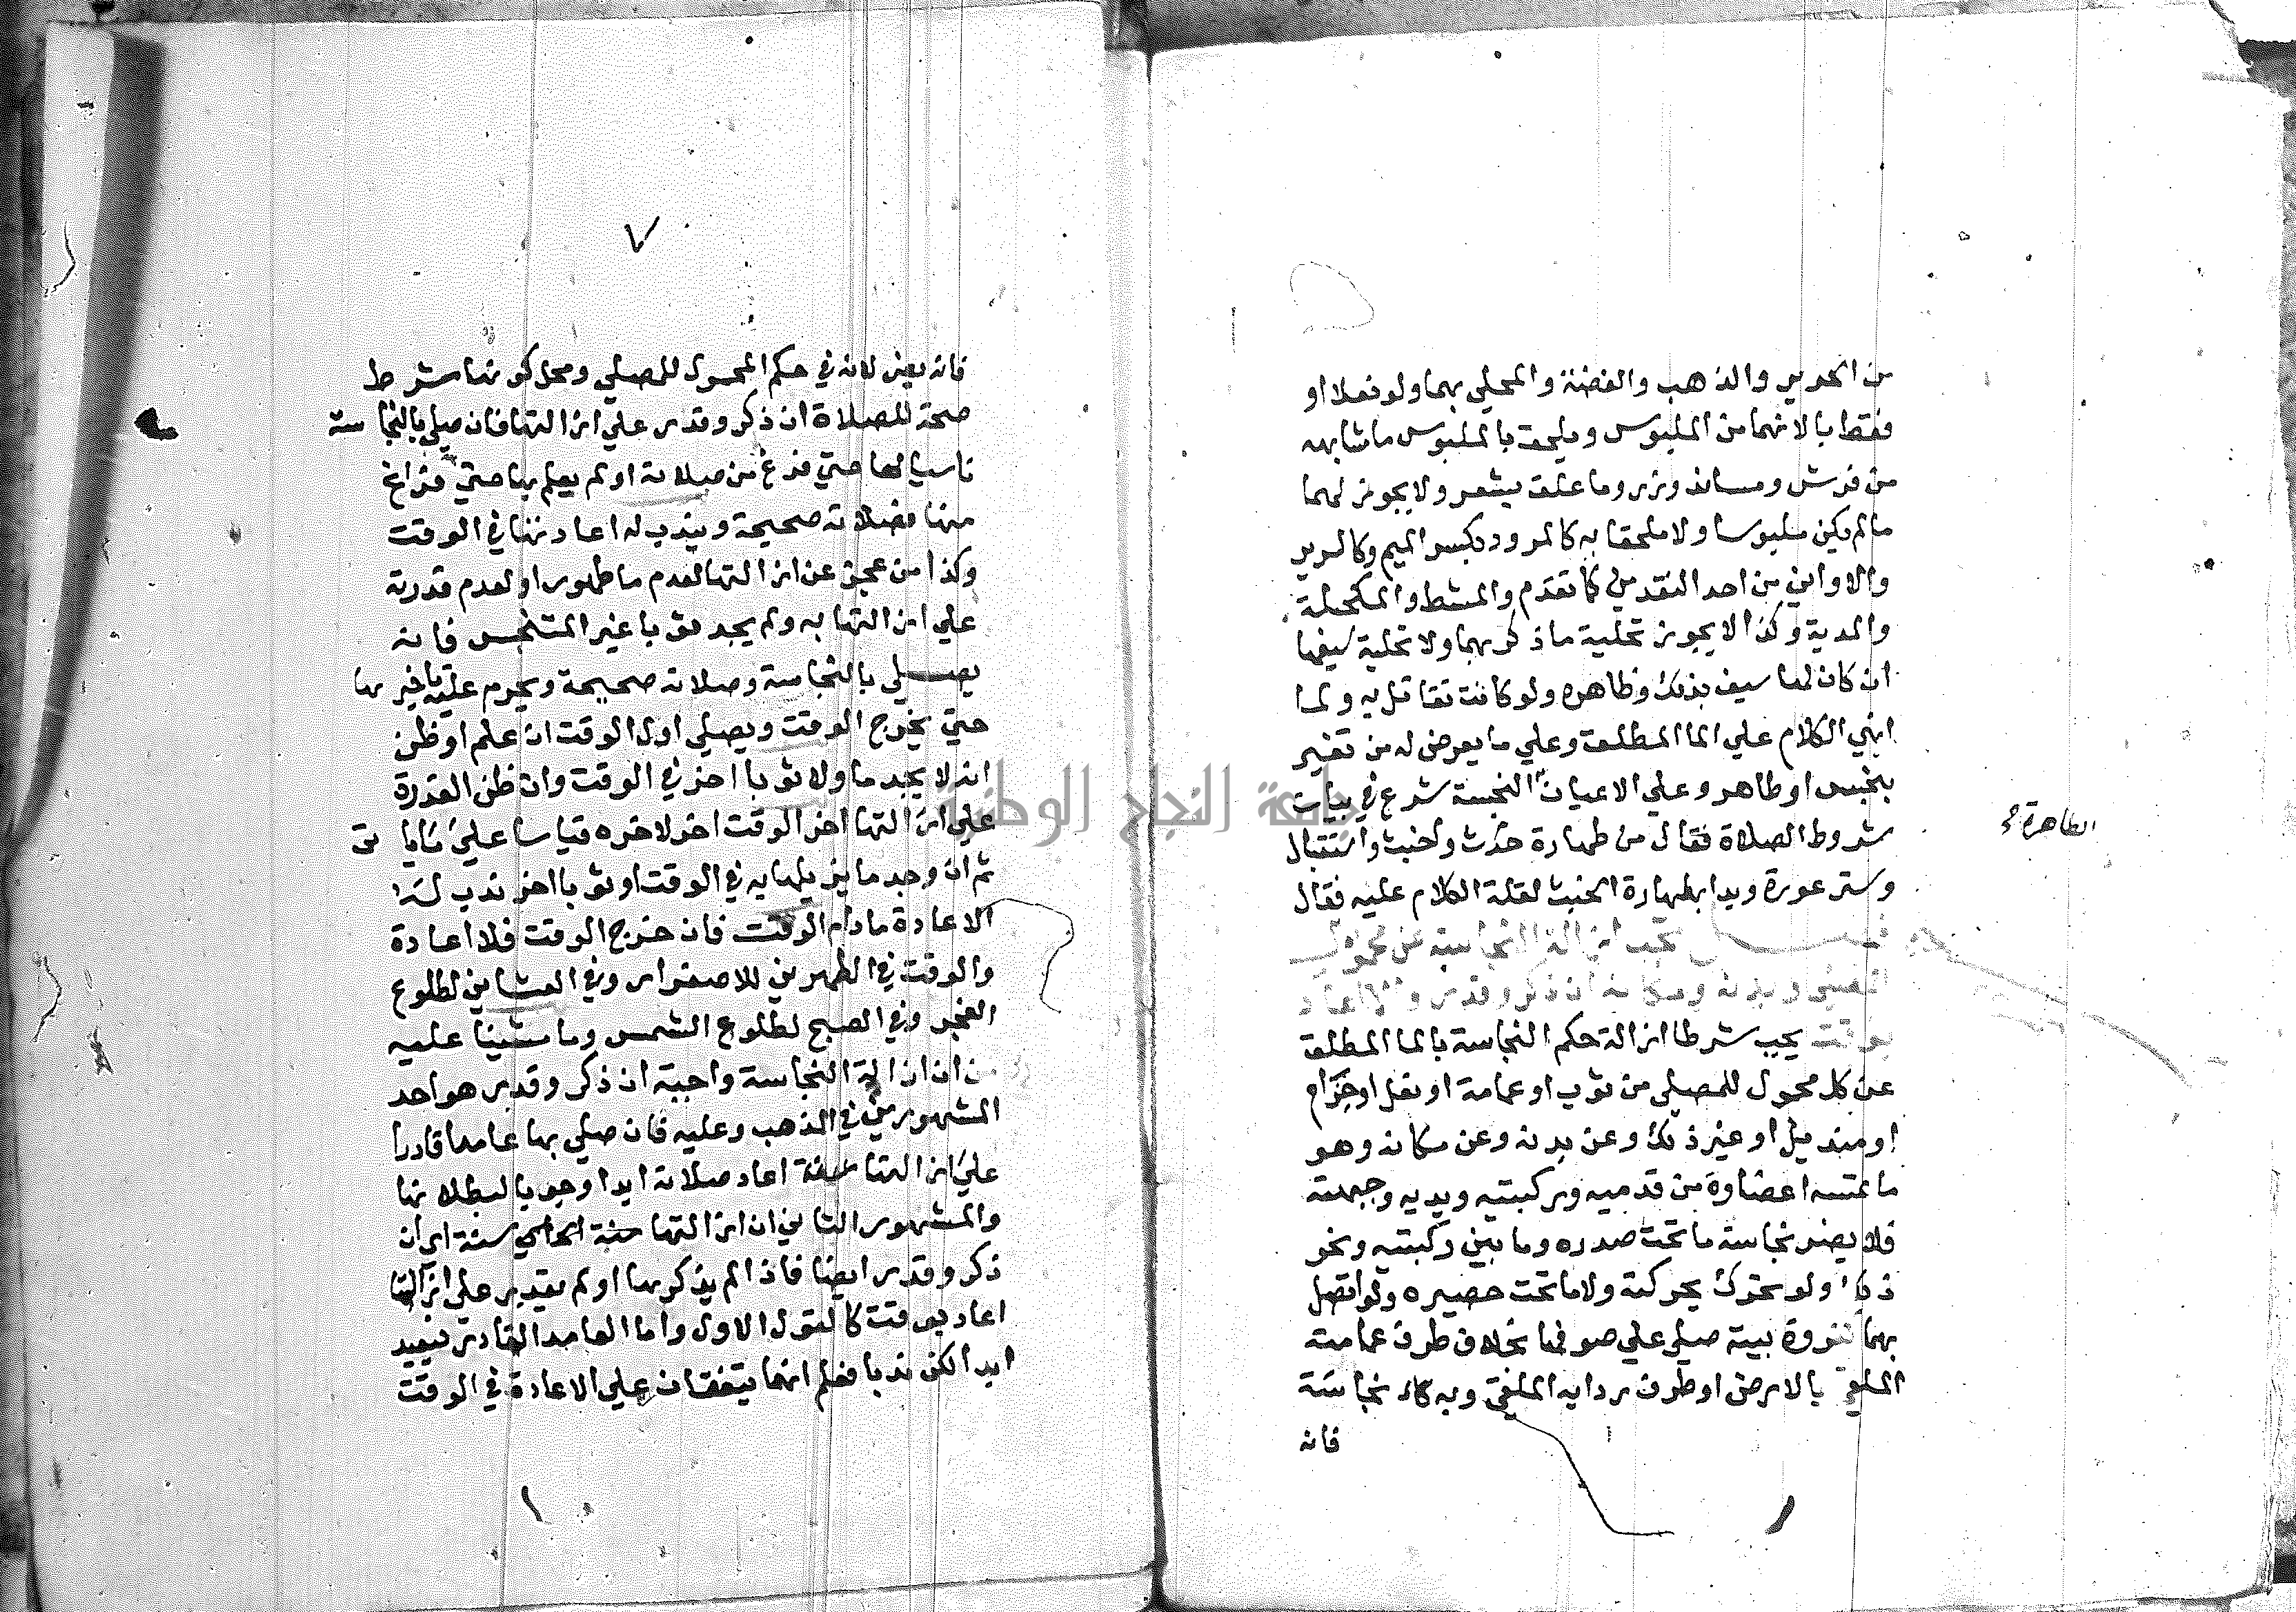 من الحرير والذهب والفضة والمحلي بهما ولو نعلا او
فقطابا لانهما من الملبوس ويلحق بالملبوس ماشابهه
من فرش ومساند وزر وما علق بشعر ولا يجوز لهما
مالم يكن ملبوسا ولا ملحقا به كالمرود بكسر الميم وكالسرير
والاواني من احد النقدين كما تقدم والمشط والمكحلة
والمدية وكذا لا يجوز تحلية ما ذكر بهما ولا تحلية سيفها
ان كان لها سيف بذلك وظاهره ولو كانت تقاتل به ولما
انهي الكلام علي الما المطلق وعلي ما يعرض له من تغير
بنجس او طاهر وعلي الاعيان النجسة شرع في بيان
الطاهرة
شروط الصلاة فقال من طهارة حدث وخبث واستقبال
وستر عورة وبدا بطهارة الخبث لقلة الكلام عليه فقال
فصل تجب ازالة النجاسة عن محمول
المصلي وبدنه ومكانه ان ذكر وقدر والا اعاد
بوقت يجب شرطا ازالة حكم النجاسة بالما المطلق
عن كل محمول للمصلي من ثوب او عمامة او نعل او حزام
او منديل او غير ذلك وعن بدنه وعن مكانه وهو
ما تمسه اعضاوه من قدميه وركبتيه ويديه وجبهته
فلا يضر نجاسة ما تحت صدره وما بين ركبتيه ونحو
ذلك ولو تحرك بحركته ولا ما تحت حصيره ولو اتصل
بها كفروة ميتة صلي علي صوفها بخلاف طرف عمامته
الملقي بالارض او طرف ردايه الملقي وبه نجاسة
فانه
٧
فانه يضر لانه في حكم المحمول للمصلي ومحل كونها شرط
صحة للصلاة ان ذكر وقدر علي ازالتها فان صلي بالنجاسة
ناسيا لها حتي فرغ من صلاته او لم يعلم بها حتي فرغ
منها فصلاته صحيحة ويندب له اعادتها في الوقت
وكذا من عجز عن ازالتها لعدم ما طهور او لعدم قدرته
علي ازالتها به ولم يجد ثوبا غير المتنجس فانه
يصلي بالنجاسة وصلاته صحيحة ويحرم عليه تاخيرها
حتي يخرج الوقت ويصلي اول الوقت ان علم او ظن
انه لا يجد ما ولا ثوبا اخر في الوقت وان ظن القدرة
علي ازالتها اخر الوقت اخر لاخره قياسا علي
ثم ان وجد ما يزيلها به في الوقت او ثوبا اخر ندب له
الاعادة مادام الوقت فان خرج الوقت فلا اعادة
والوقت في الظهرين للاصفرار وفي العشاين لطلوع
الفجر وفي الصبح لطلوع الشمس وما مشينا عليه
من ان ازالة النجاسة واجبة ان ذكر وقدر هو احد
المشهورين في المذهب وعليه فان صلي بها عامدا قادرا
علي ازالتها اعاد صلاته ابدا وجوبا لبطلانها
والمشهور الثاني ان ازالتها سنة ان
ذكر وقدر ايضا فاذا لم يذكرها او لم يقدر علي ازالتها
اعاد بوقت كالقول الاول واما العامد القادر فيعيد
ابدا لكن ندبا فعلم انهما يتفقان علي الاعادة في الوقت
جامعة النجاح الوطنية